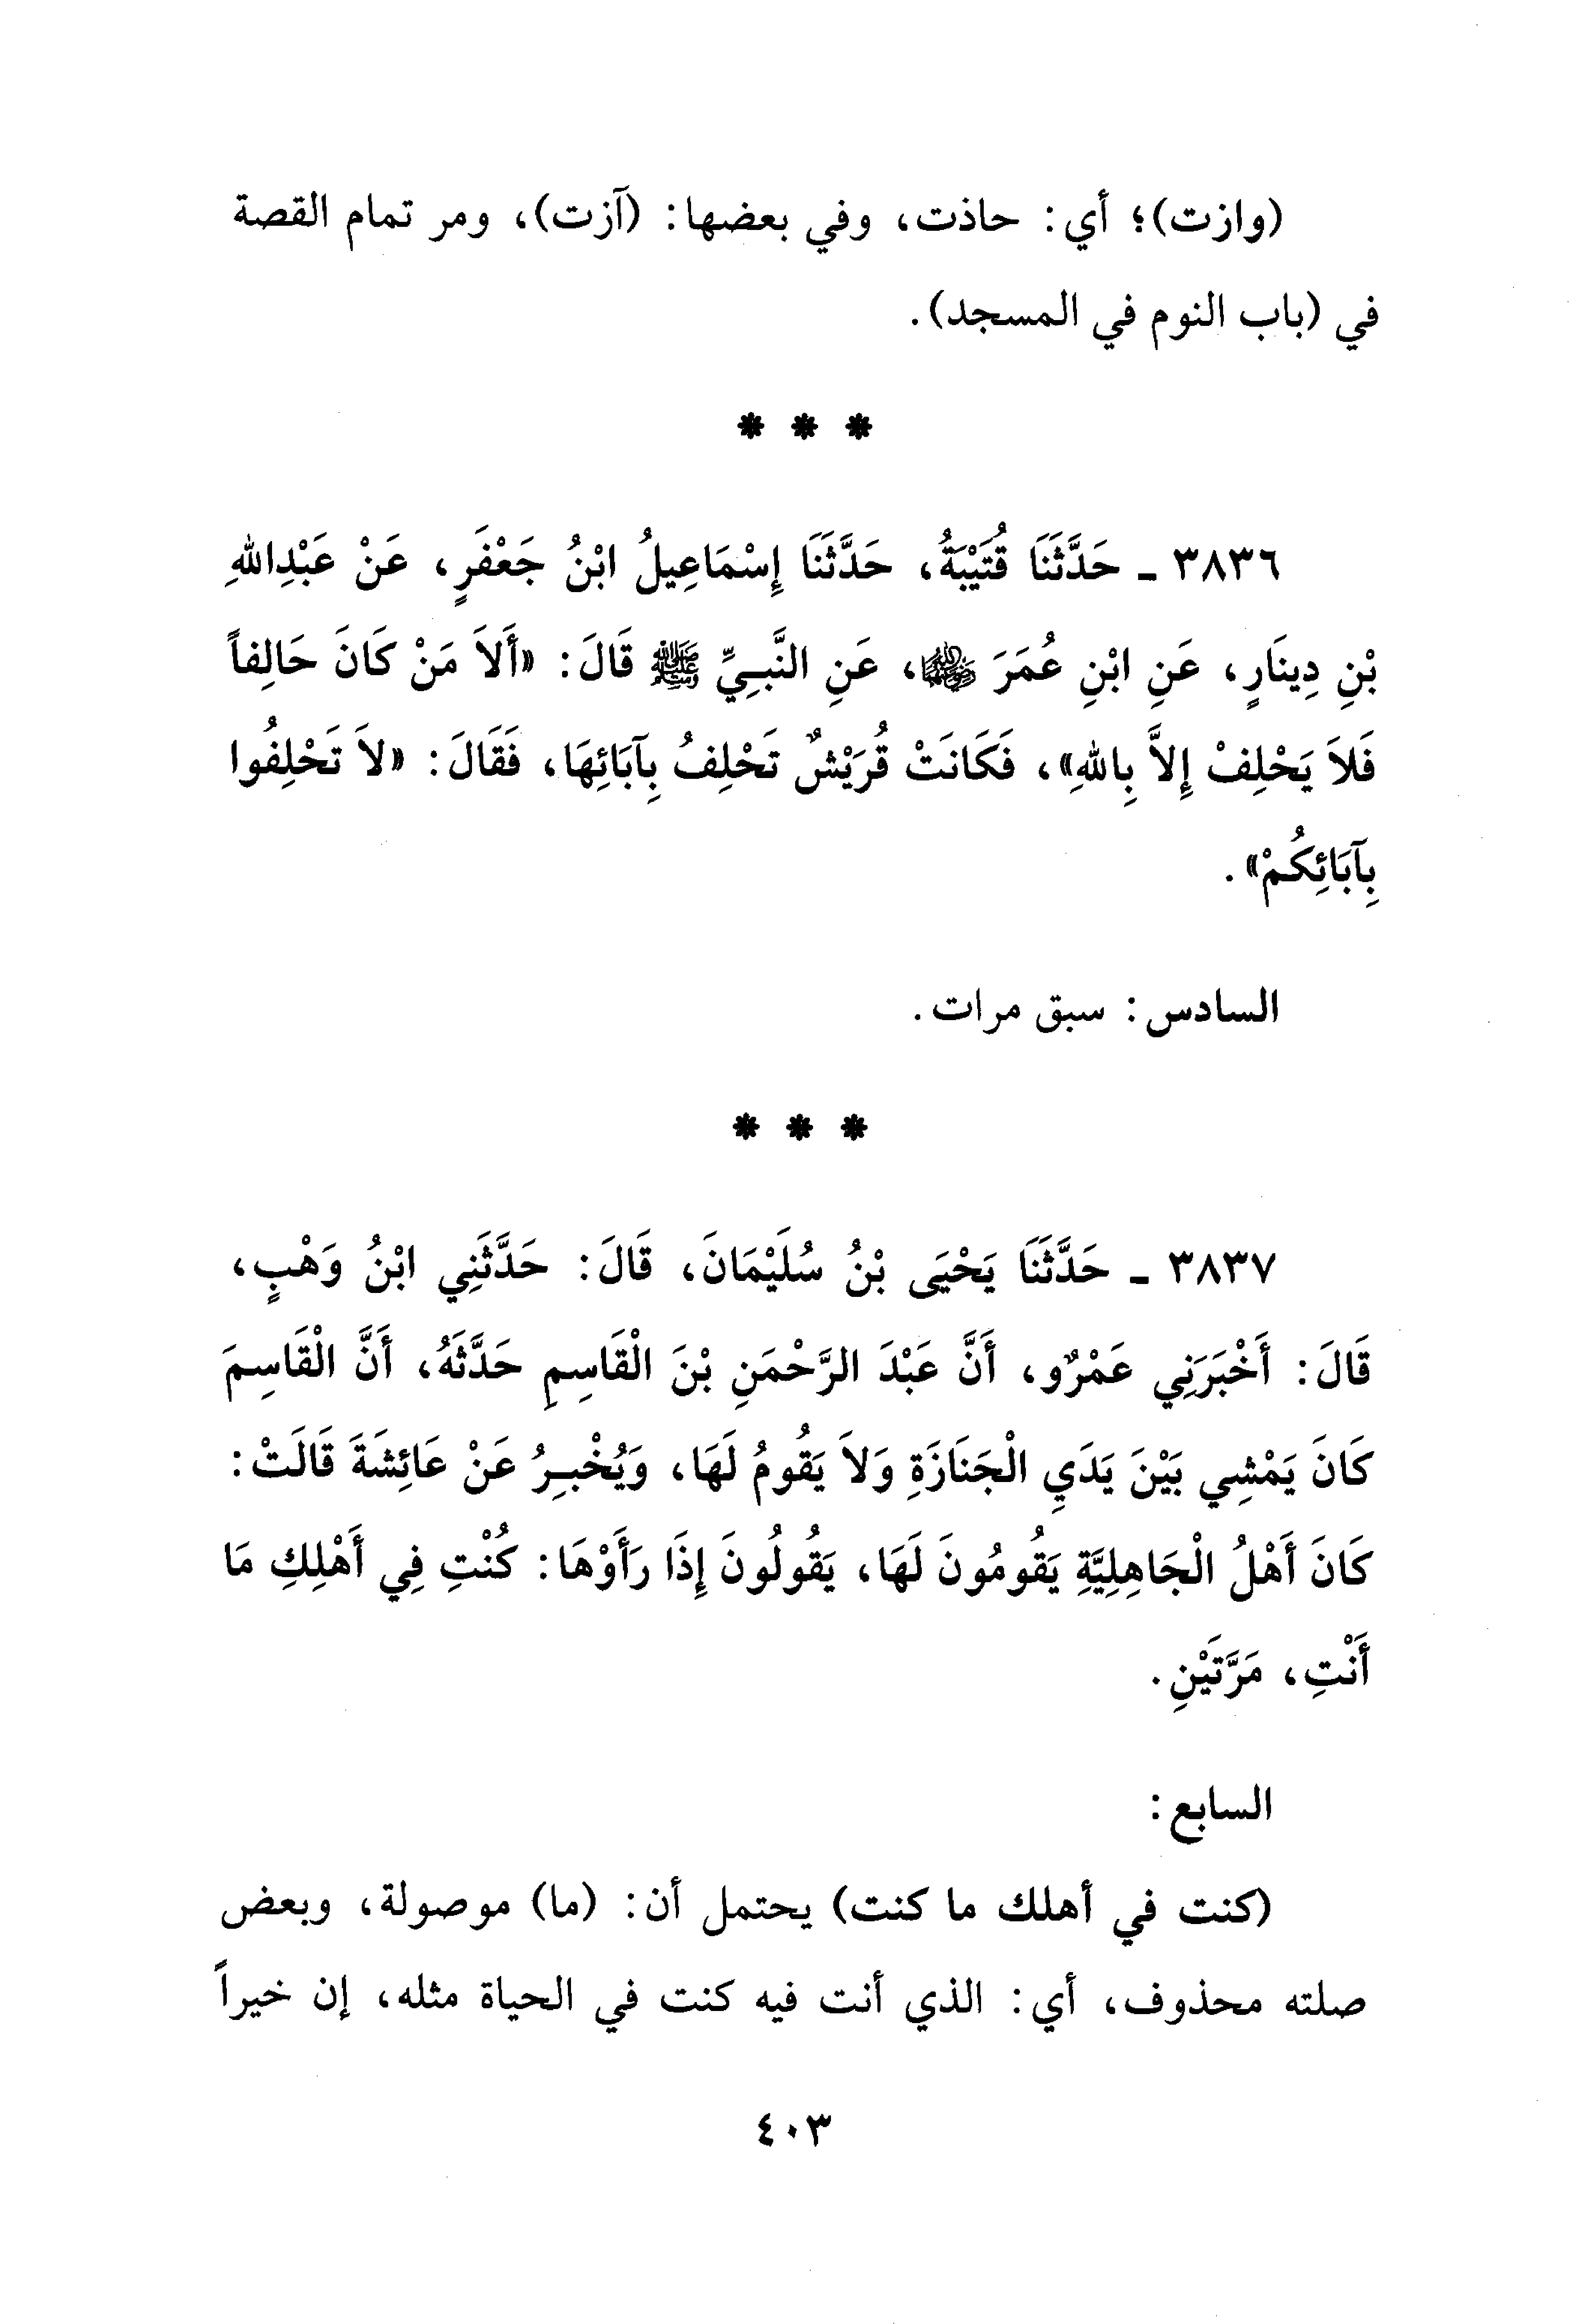 (وازت)؛ أي: حاذت، وفي بعضها: (آزت)، ومر تمام القصة
في (باب النوم في المسجد).
* * *
٣٨٣٦ ـ حَدَّثَنَا قُتَيْبَةُ، حَدَّثَنَا إِسْمَاعِيلُ ابْنُ جَعْفَرٍ، عَنْ عَبْدِاللهِ
بْنِ دِينَارٍ، عَنِ ابْنِ عُمَرَ رضي الله عنهما، عَنِ النَّبِيِّ ﷺ قَالَ: «أَلاَ مَنْ كَانَ حَالِفاً
فَلاَ يَحْلِفْ إِلاَّ بِاللهِ»، فَكَانَتْ قُرَيْشٌ تَحْلِفُ بِآبَائِهَا، فَقَالَ: «لاَ تَحْلِفُوا
بِآبَائِكُمْ».
السادس: سبق مرات.
* * *
٣٨٣٧ ـ حَدَّثَنَا يَحْيَى بْنُ سُلَيْمَانَ، قَالَ: حَدَّثَنِي ابْنُ وَهْبٍ،
قَالَ: أَخْبَرَنِي عَمْرٌو، أَنَّ عَبْدَ الرَّحْمَنِ بْنَ الْقَاسِمِ حَدَّثَهُ، أَنَّ الْقَاسِمَ
كَانَ يَمْشِي بَيْنَ يَدَيِ الْجَنَازَةِ وَلاَ يَقُومُ لَهَا، وَيُخْبِرُ عَنْ عَائِشَةَ قَالَتْ:
كَانَ أَهْلُ الْجَاهِلِيَّةِ يَقُومُونَ لَهَا، يَقُولُونَ إِذَا رَأَوْهَا: كُنْتِ فِي أَهْلِكِ مَا
أَنْتِ، مَرَّتَيْنِ.
السابع:
(كنت في أهلك ما كنت) يحتمل أن: (ما) موصولة، وبعض
صلته محذوف، أي: الذي أنت فيه كنت في الحياة مثله، إن خيراً
٤٠٣